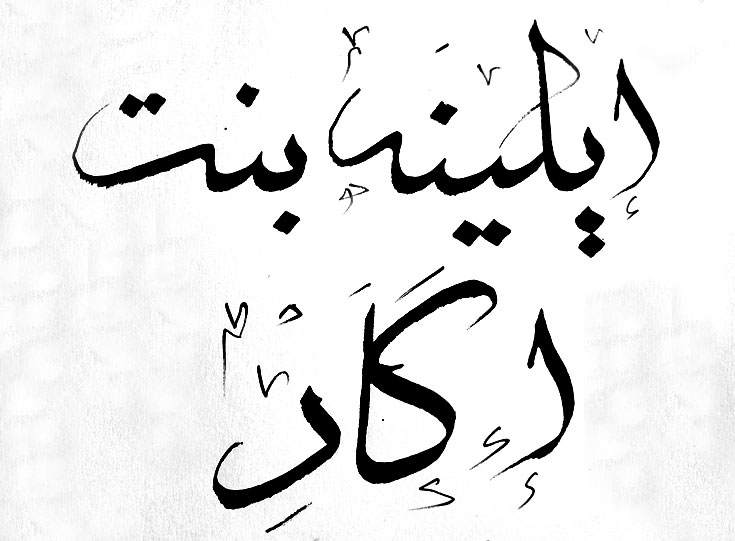 إيلينَه بنت
إگَارِ